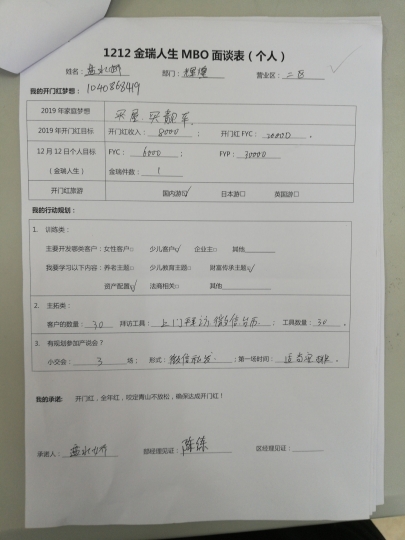 1212 金瑞人生 MBO 面谈表（个人）
姓名： 部门： 营业区：二区
我的开门红梦想：1040868419
2019 年家庭梦想 买屋.买靓车.
2019 年开门红目标 开门红收入：8000； 开门红 FYC：20000.
12 月 12 日个人目标 FYC：6000； FYP：30000
（金瑞人生） 金瑞件数：1
开门红旅游 国内游☑ 日本游□ 英国游□
我的行动规划：
1. 训练类：
主要开发哪类客户：女性客户□ 少儿客户☑ 企业主□ 其他
我要学习以下内容：养老主题□ 少儿教育主题□ 财富传承主题☑
资产配置☑ 法商相关□ 其他
2. 主拓类：
客户的数量：30 拜访工具：上门拜访,微信 ； 工具数量：30.
3. 有规划参加产说会？
小交会：3 场； 形式：微信 ；第一场时间：
我的承诺： 开门红，全年红，咬定青山不放松，确保达成开门红！
承诺人： 部经理见证：陈练 区经理见证：